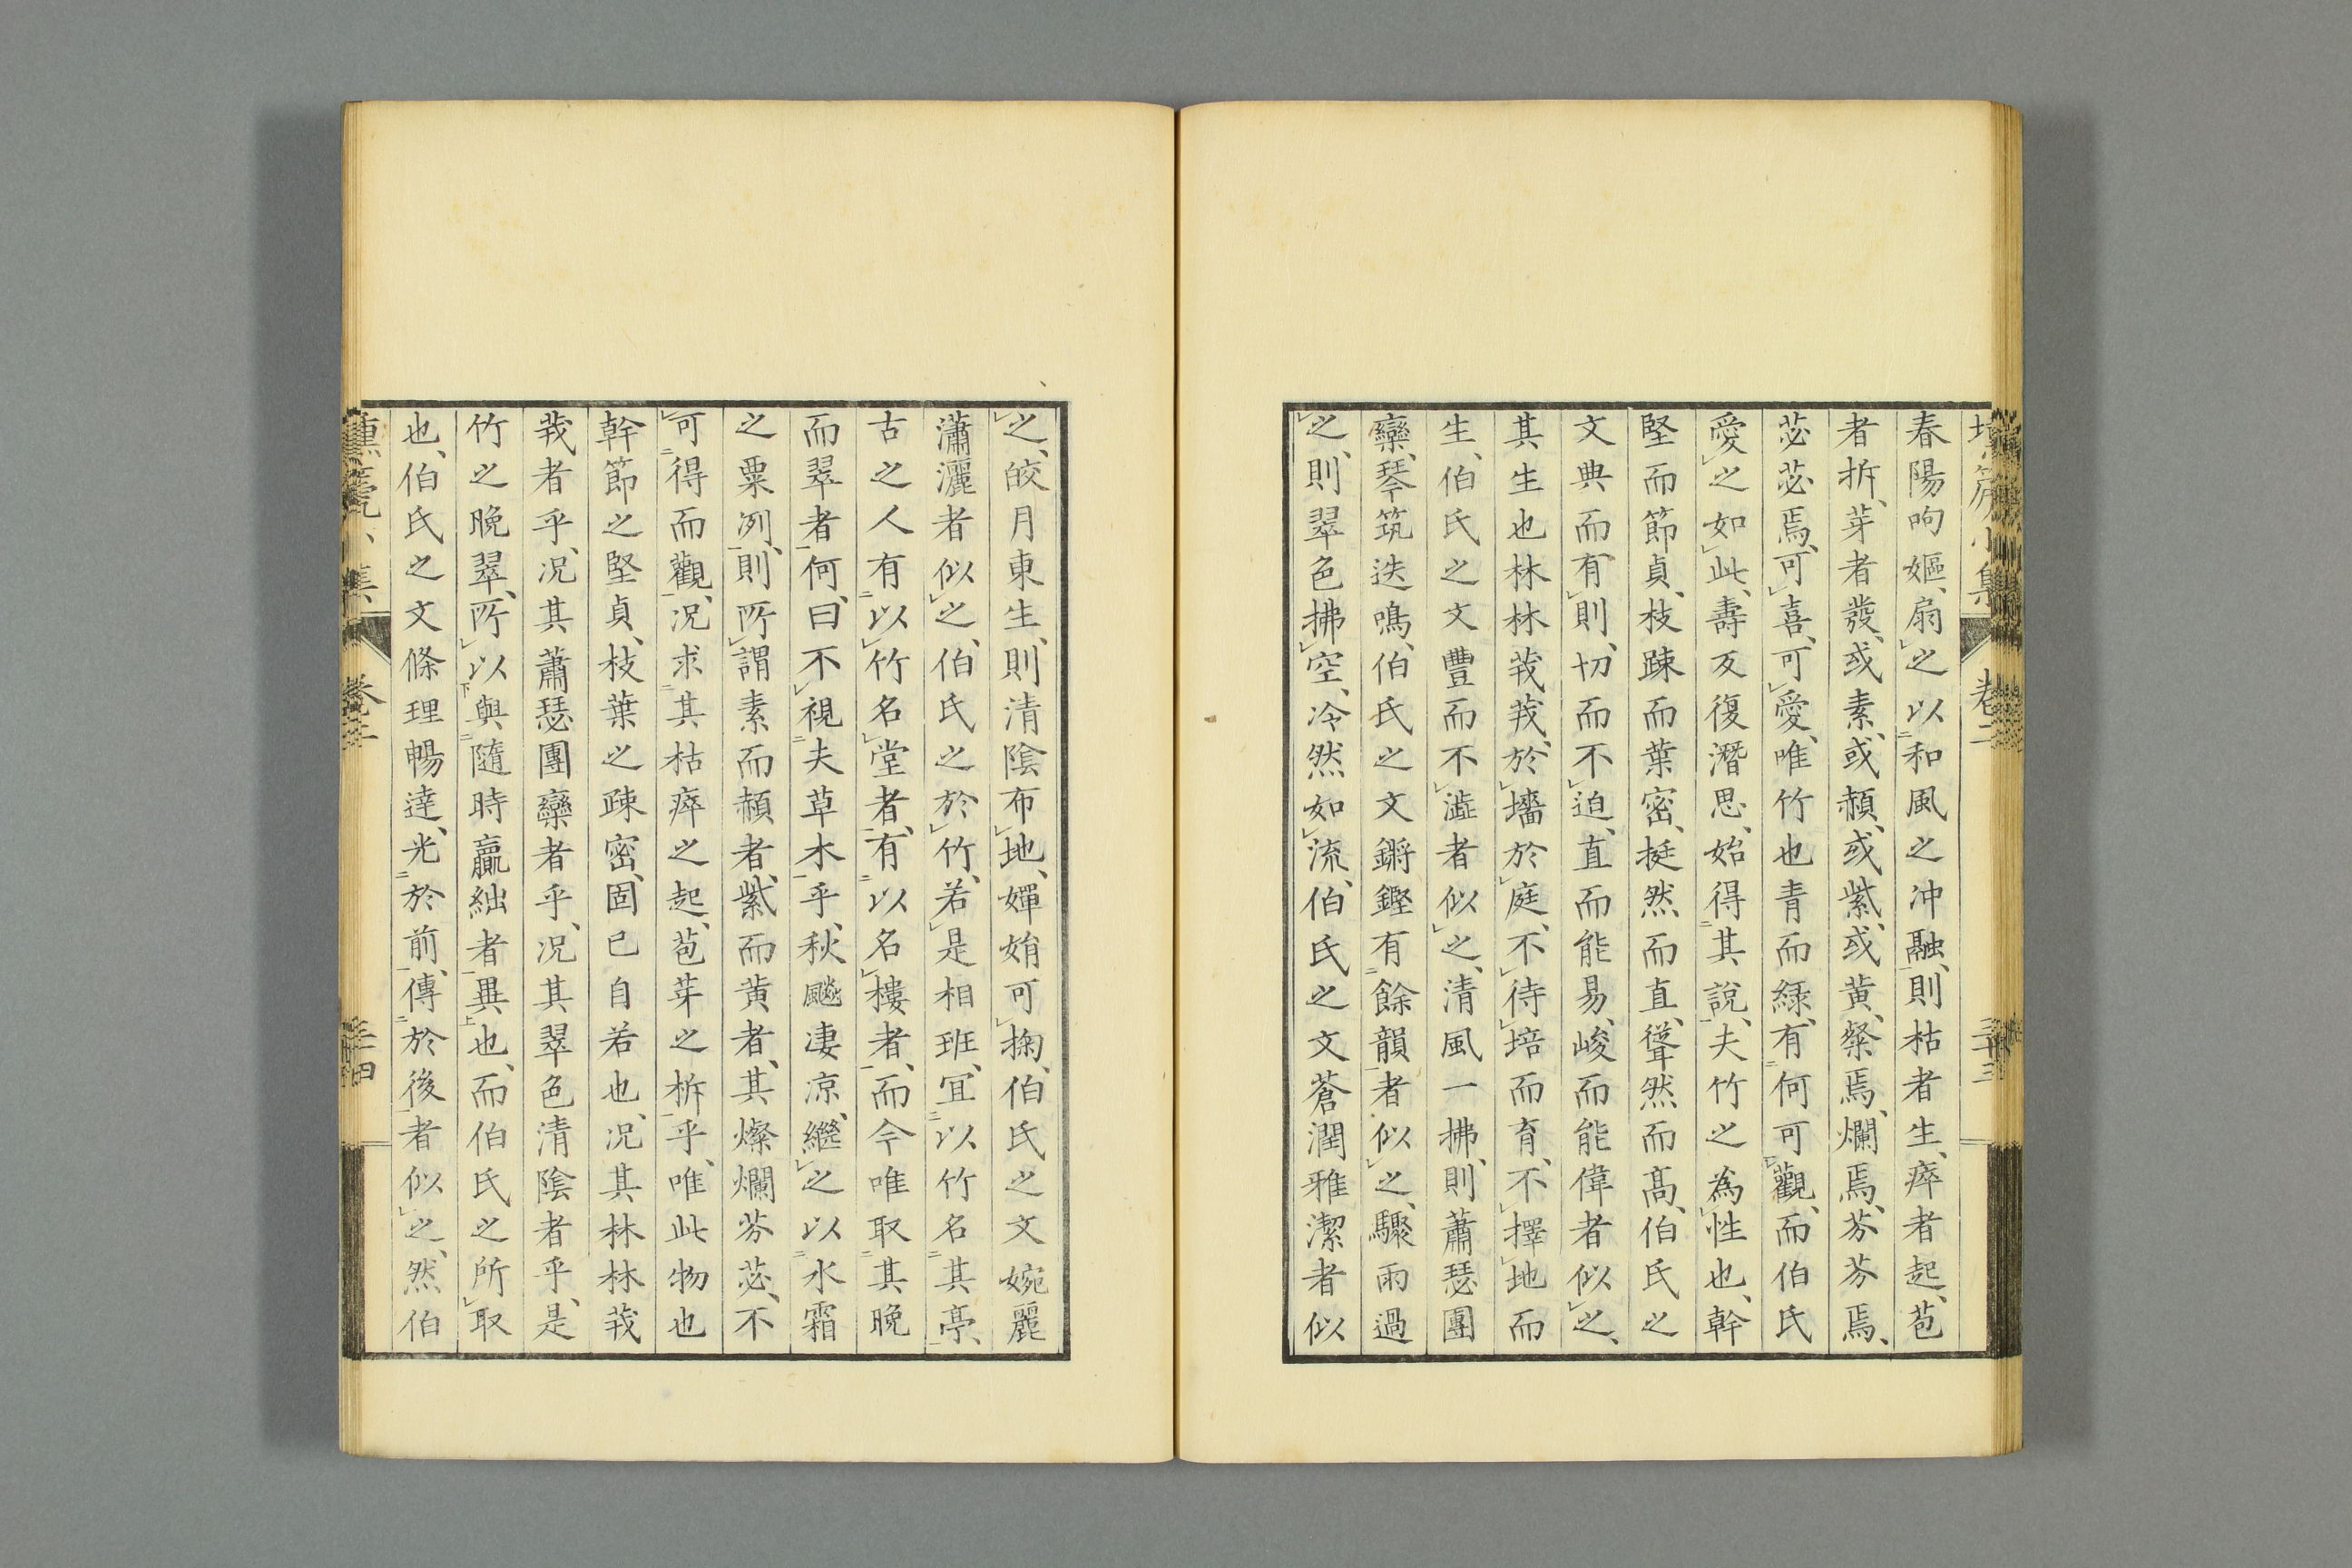 春陽呴嫗、扇之以和風之冲融、則枯者生、瘁者起、苞
者拆、芽者發、或素、或赬、或紫、或黃、粲焉、爛焉、芬芬焉、
苾苾焉、可喜、可愛、唯竹也青而綠、有何可觀、而伯氏
愛之如此、壽反復潛思、始得其說、夫竹之為性也、幹
堅而節貞、枝疎而葉密、挺然而直、聳然而高、伯氏之
文典而有則、切而不迫、直而能易、峻而能偉者似之、
其生也林林莪莪、於墻於庭、不待培而育、不擇地而
生、伯氏之文豐而不澁者似之、清風一拂、則蕭瑟團
欒、琴筑迭鳴、伯氏之文鏘鏗有餘韻者似之、驟雨過
之、則翠色拂空、冷然如流、伯氏之文蒼潤雅潔者似
卷二
三十三
之、皎月東生、則清陰布地、嬋娟可掬、伯氏之文婉麗
瀟灑者似之、伯氏之於竹、若是相班、冝以竹名其亭、
古之人有以竹名堂者、有以名樓者、而今唯取其晚
而翠者何、曰不視夫草木乎、秋飈凄凉、繼之以水霜
之粟冽、則所謂素而赬者、紫而黃者、其燦爛芬苾、不
可得而觀、况求其枯瘁之起、苞芽之柝乎、唯此物也
幹節之堅貞、枝葉之疎密、固已自若也、况其林林莪
莪者乎、况其蕭瑟團欒者乎、况其翠色清陰者乎、是
竹之晚翠、所以與隨時贏絀者異也、而伯氏之所取
也、伯氏之文條理暢達、光於前、傳於後者似之、然伯
卷二
三十四